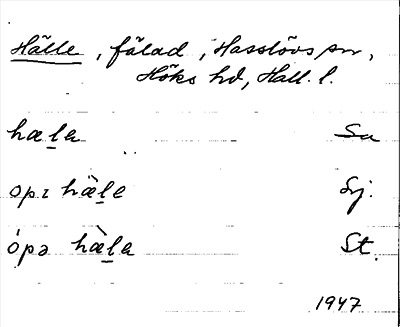 Hälle, fälad, Hasslövs sn,
Höks hd, Hall. l.
hæla Sa
opı hæ̀le Sj.
ópə hæ̀la St.
1947